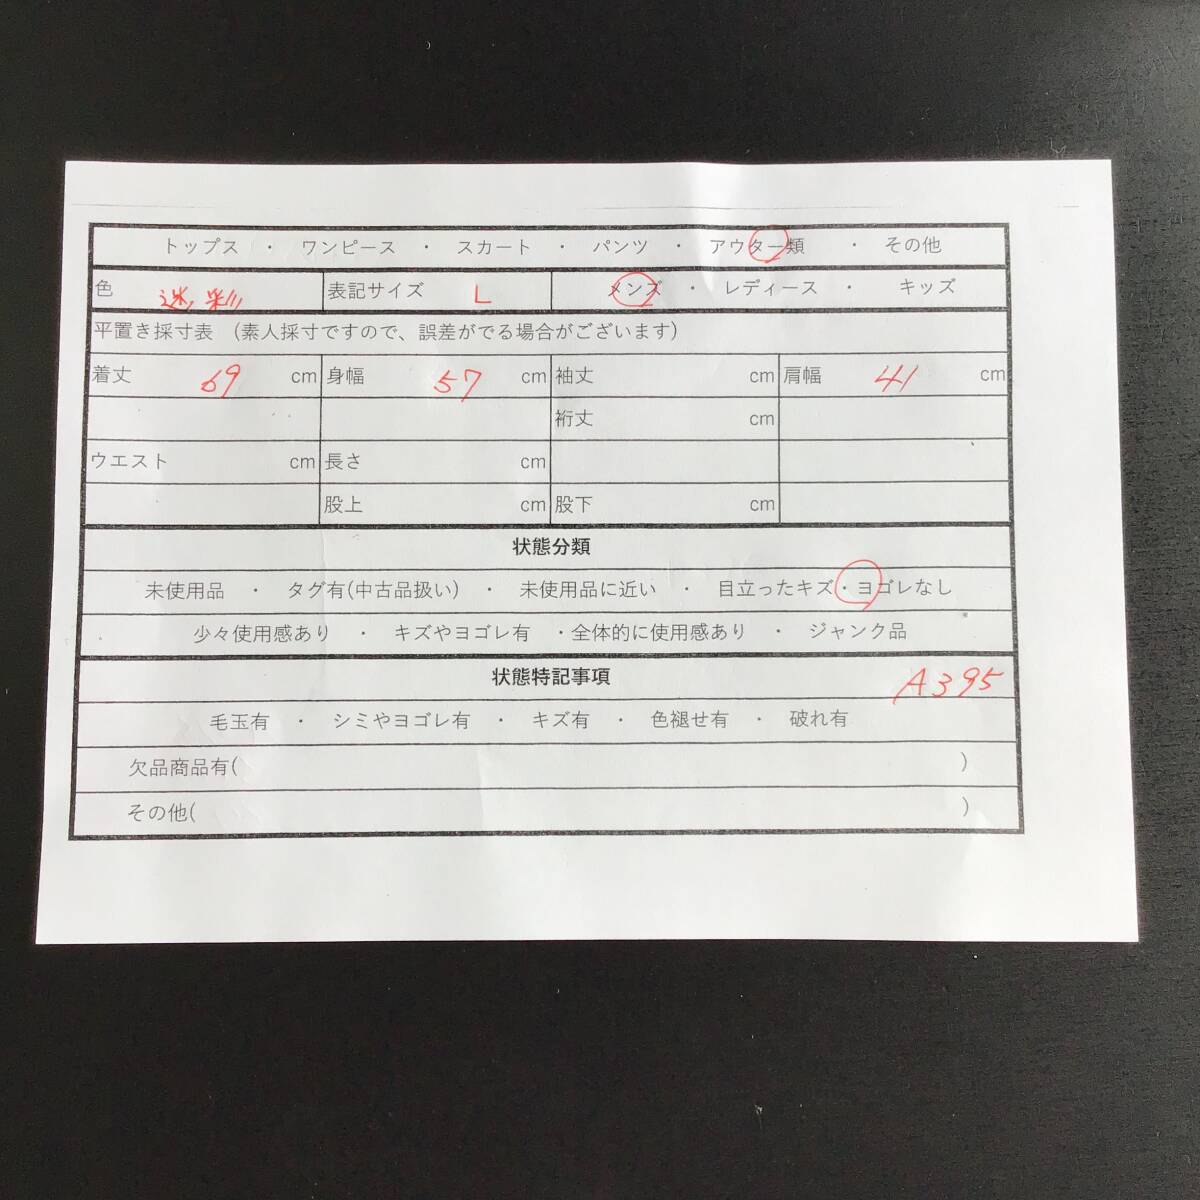 トップス ・ ワンピース ・ スカート ・ パンツ ・ アウター類 ・ その他
色 迷彩 表記サイズ L メンズ ・ レディース ・ キッズ
平置き採寸表 (素人採寸ですので、誤差がでる場合がございます)
着丈 69 cm 身幅 57 cm 袖丈 cm 肩幅 41 cm
裄丈 cm
ウエスト cm 長さ cm
股上 cm 股下 cm
状態分類
未使用品 ・ タグ有(中古品扱い) ・ 未使用品に近い ・ 目立ったキズ・ヨゴレなし
少々使用感あり ・ キズやヨゴレ有 ・全体的に使用感あり ・ ジャンク品
状態特記事項 A395
毛玉有 ・ シミやヨゴレ有 ・ キズ有 ・ 色褪せ有 ・ 破れ有
欠品商品有( )
その他( )